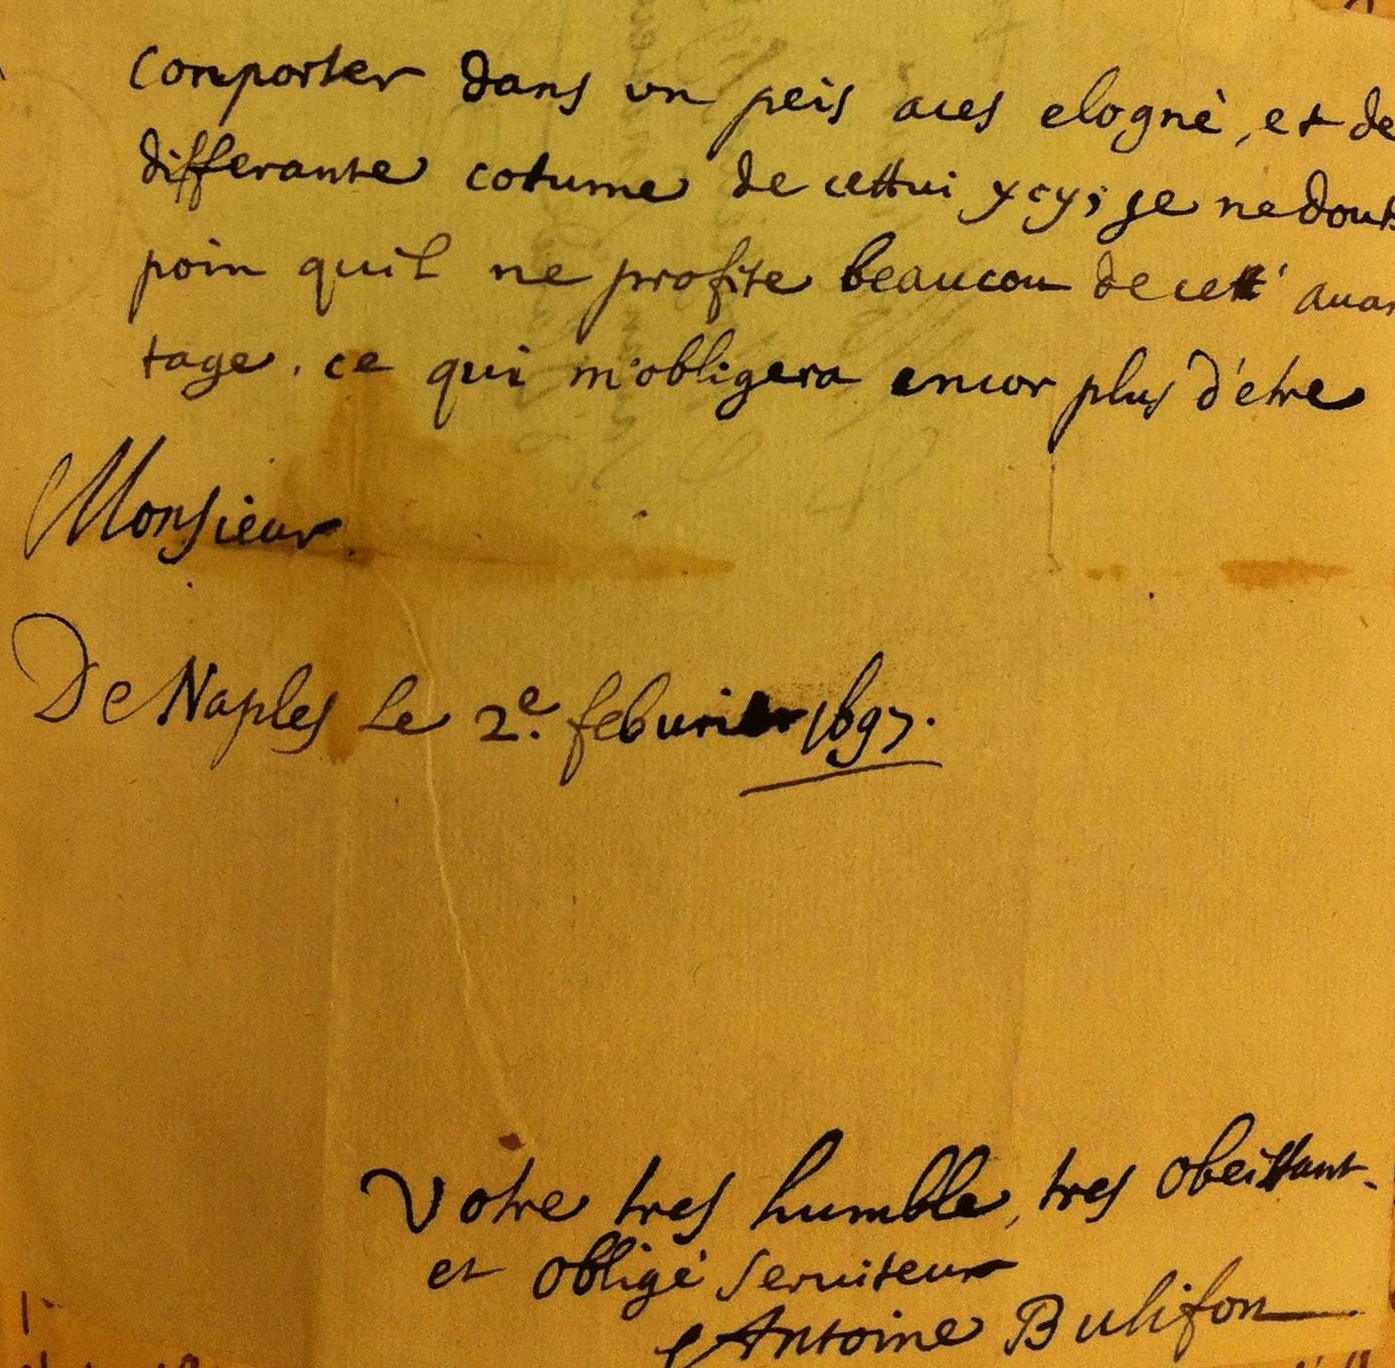 comporter dans un peis aces elogné, et de
differante cotume de cettui ycy; je ne dout
poin quil ne profite beaucou de cett' auan
tage. ce qui m'obligera encor plus d'etre
Monsieur
De Naples le 2e. feburier 1697.
Votre tres humble, tres obeissant
et obligé seruiteur
Antoine Bulifon